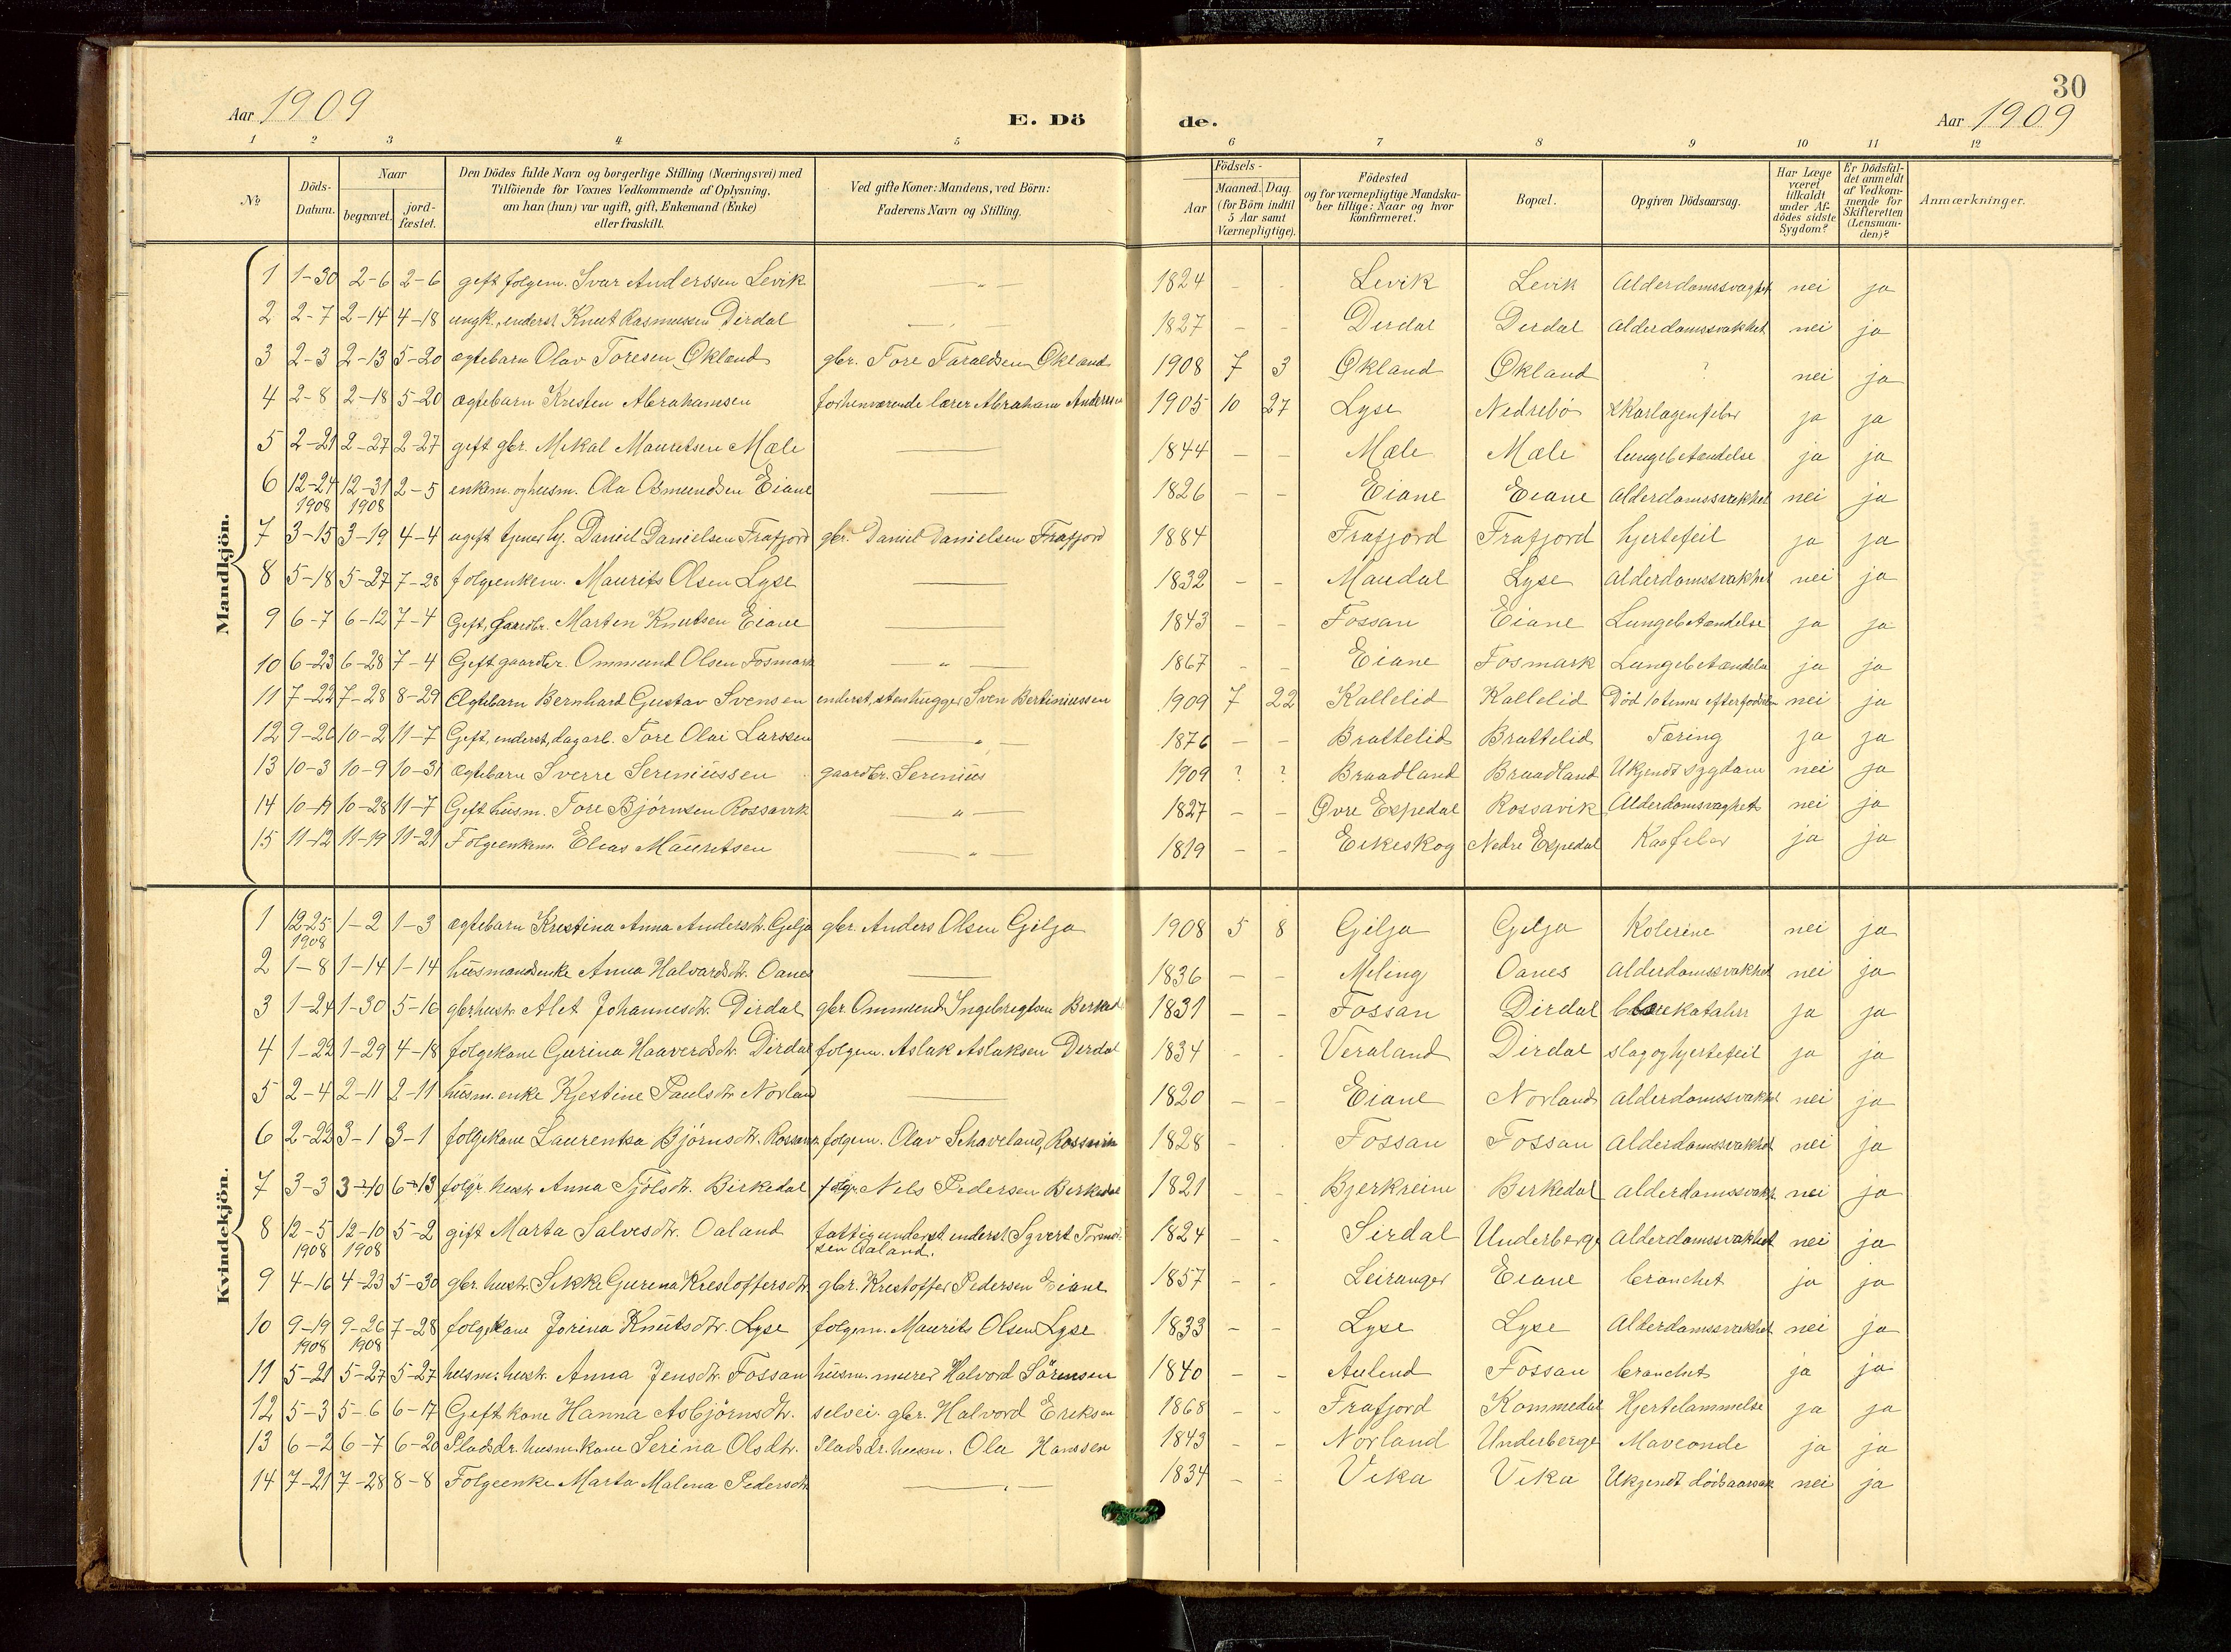 30
Aar 1909 E. Dö de. Aar 1909
1 2 3 4 5 6 7 8 9 10 11 12
No. Döds-Datum. Naar begravet. jord-fæstet. Den Dödes fulde Navn og borgerlige Stilling (Næringsvei) med Tilföiende for Voxnes Vedkommende af Oplysning, om han (hun) var ugift, gift, Enkemand (Enke) eller fraskilt. Ved gifte Koner: Mandens, ved Börn: Faderens Navn og Stilling. Födsels- Aar Maaned. Dag. (for Börn indtil 5 Aar samt Værnepligtige). Födested og for værnepligtige Mandska-ber tillige: Naar og hvor konfirmeret. Bopæl. Opgiven Dödsaarsag. Har Læge været tilkaldt under Af-dödes sidste Sygdom? Er Dödsfal-det anmeldt af Vedkom-mende for Skifteretten (Lensman-den)? Anmærkninger.
Mandkjön.
1 1-30 2-6 2-6 gift folgem. Ivar Anderssen Levik — " — 1824 - - Levik Levik Alderdomssvaghet nei ja
2 2-7 2-14 4-18 ungk. inderst Knut Rasmussen Dirdal — " — 1827 - - Dirdal Dirdal Alderdomssvakhet nei ja
3 2-3 2-13 5-20 ægtebarn Olav Toresen Økland gbr. Tore Taraldsen Økland 1908 7 3 Økland Økland ? nei ja
4 2-8 2-18 5-20 ægtebarn Kresten Abrahamsen forhenværende lærer Abraham Andersen 1905 10 27 Lyse Nedrebö Skarlagenfeber ja ja
5 2-21 2-27 2-27 gift gbr. Mikal Mauritsen Mæle — 1844 - - Mæle Mæle lungebetændelse ja ja
6 12-24 1908 12-31 1908 2-5 enkem. og husm. Ola Osmundsen Eiane — 1826 - - Eiane Eiane Alderdomssvakhet nei ja
7 3-15 3-19 4-4 ugift tjener Daniel Danielsen Frafjord gbr. Daniel Danielsen Frafjord 1884 Frafjord Frafjord hjertefeil ja ja
8 5-18 5-27 7-28 folgeenkem. Maurits Olsen Lyse — 1832 - - Maudal Lyse Alderdomssvakhet nei ja
9 6-7 6-12 7-4 Gift, Gaardbr. Marten Knutsen Eiane — 1843 - - Fossan Eiane Lungebetændelse ja ja
10 6-23 6-28 7-4 Gift gaardbr. Ommund Olsen Fosmark — " — 1867 - - Eiane Fosmark Lungebetændelse ja ja
11 7-22 7-28 8-29 Ægtebarn Bernhard Gustav Svensen inderst, stenhugger Sven Bertiniussen 1909 7 22 Kallelid Kallelid Död 10 timer efter födselen nei ja
12 9-26 10-2 11-7 Gift, inderst, dagarb. Tore Olai Larssen — " — 1876 - - Brattelid Brattelid Tæring ja ja
13 10-3 10-9 10-31 ægtebarn Sverre Sereniussen gaardbr. Serenius 1909 ? ? Braadland Braadland Ukjendt sygdom nei ja
14 10-17 10-28 11-7 Gift husm. Tore Björnsen Rossavik — " — 1827 - - Øvre Espedal Rossavik Alderdomsvaghet nei ja
15 11-12 11-19 11-21 Folgeenkem. Elias Mauritsen — " — 1819 - - Eikeskog Nedre Espedal ja ja
Kvindekjön.
1 12-25 1908 1-2 1-3 ægtebarn Kristina Anna Andersdtr. Gilja gbr. Anders Olsen Gilja 1908 5 8 Gilja Gilja Kolerine nei ja
2 1-8 1-14 1-14 husmandsenke Anna Halvardsdtr. Oanes — 1836 - - Meling Oanes Alderdomssvakhet nei ja
3 1-24 1-30 5-16 gbrhustr. Alet Johannesdtr. Dirdal gbr. Ommund Ingebregtsen 1831 - - Fossan Dirdal ja ja
4 1-22 1-29 4-18 folgekone Gurina Haavardsdtr. Dirdal folgem. Aslak Aslaksen Dirdal 1834 - - Veraland Dirdal slag og hjertefeil ja ja
5 2-4 2-11 2-11 husm. enke Kjestine Paulsdtr Norland — 1820 - - Eiane Norland Alderdomssvakhet nei ja
6 2-22 3-1 3-1 folgekone Laurentsa Björnsdtr. Rossavik folgem. Olav Schaveland, Rossavik 1828 - - Fossan Fossan Alderdomssvakhet nei ja
7 3-3 3-10 6-13 folgr. hustr. Anna Tjölsdtr. Birkedal folgr. Nels Pedersen Birkedal 1821 - - Bjerkreim Birkedal Alderdomssvakh. nei ja
8 12-5 1908 12-10 1908 5-2 gift Marta Salvesdtr. Oaland fattigunderst. inderst Syvert Oaland. 1824 - - Sirdal Underberge Alderdomssvakhet nei ja
9 4-16 4-23 5-30 gbr. hustr. Sikke Gurina Krestoffersdtr. gbr. Krestoffer Pedersen Eiane 1857 - - Leiranger Eiane bronchit ja ja
10 9-19 1908 9-26 1908 7-28 folgekone Jorina Knutsdtr. Lyse folgem. Maurits Olsen Lyse 1833 - - Lyse Lyse Alderdomssvakhet nei ja
11 5-21 5-27 5-27 husm. hustr. Anna Jensdtr. Fossan husm. murer Halvord Sörensen 1840 - - Aulend Fossan bronchit ja ja
12 5-3 5-6 6-17 Gift kone Hanna Asbjörnsdtr. selvei. gbr. Halvord Eriksen 1868 - - Frafjord Kommedal Hjertelammelse ja ja
13 6-2 6-7 6-20 Pladsdr. husm. kone Serina Olsdtr. Pladsdr. husm. Ola Hanssen 1843 - - Norland Underberge Maveonde ja ja
14 7-21 7-28 8-8 Folgeenke Marta Malena Pedersdtr — " — 1834 - - Vika Vika Ukjendt dödsaarsak nei ja